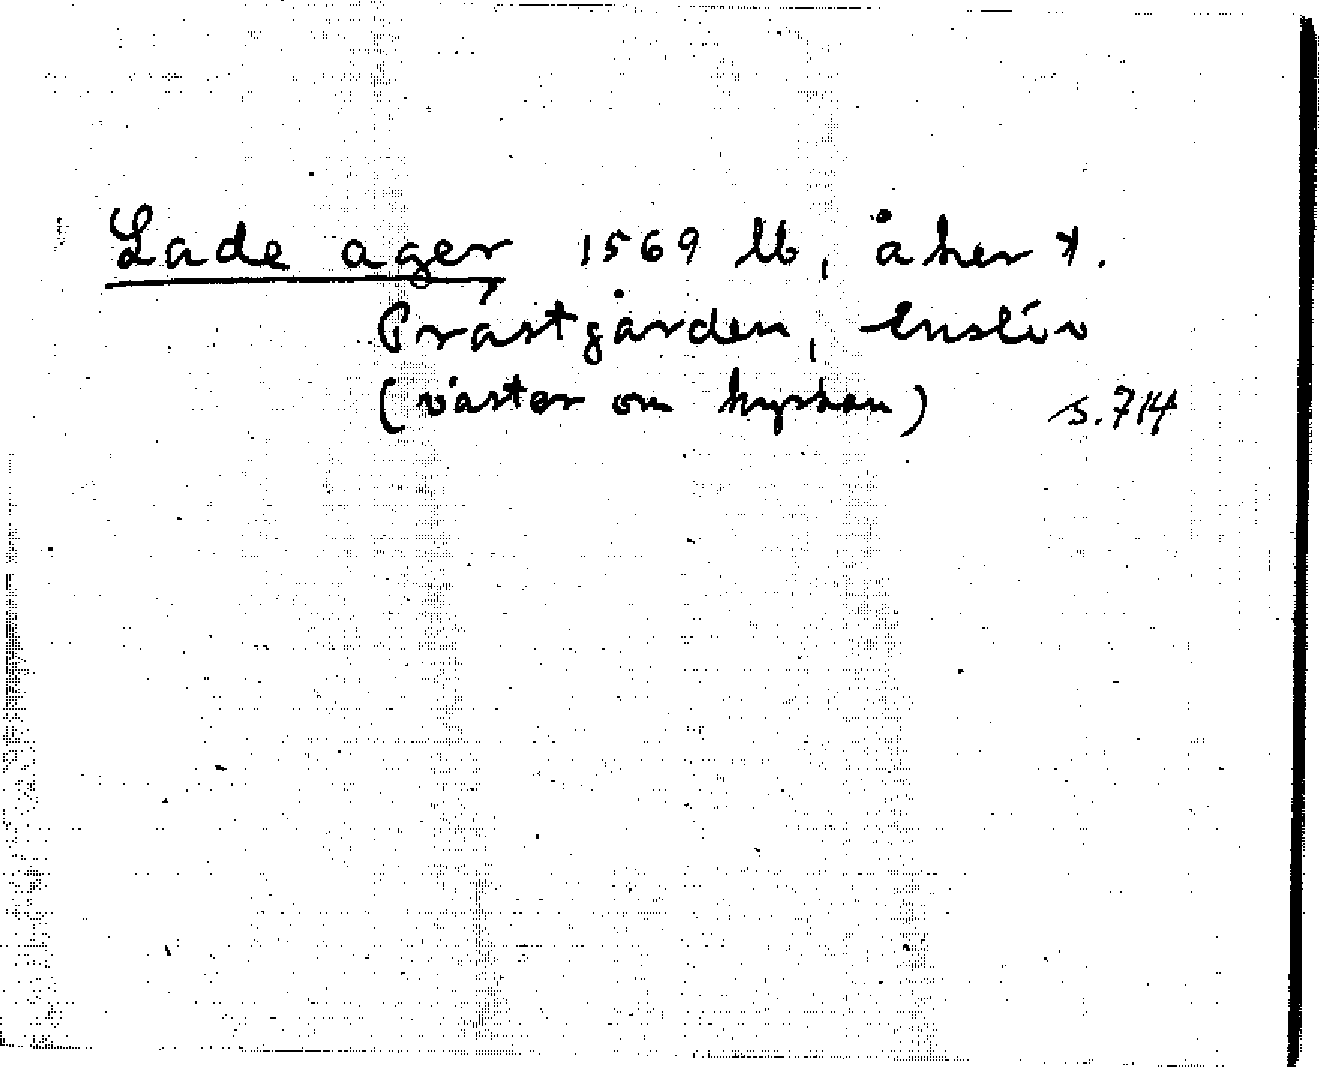 Lade ager 1569 lb, åker t.
Prästgården, Enslöv
(väster om kyrkan) s. 714